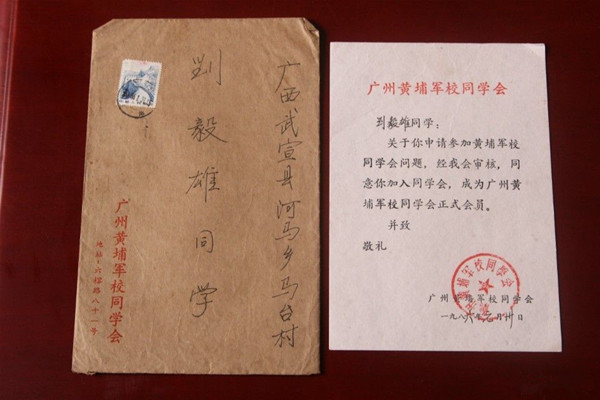 广西武宣县河马乡马台村
刘毅雄同学
广州黄埔军校同学会
地址：六榕路八十一号
广州黄埔军校同学会
刘毅雄同学：
关于你申请参加黄埔军校
同学会问题，经我会审核，同
意你加入同学会，成为广州黄
埔军校同学会正式会员。
并致
敬礼
广州黄埔军校同学会
一九八六年 月 日
埔军校同学会